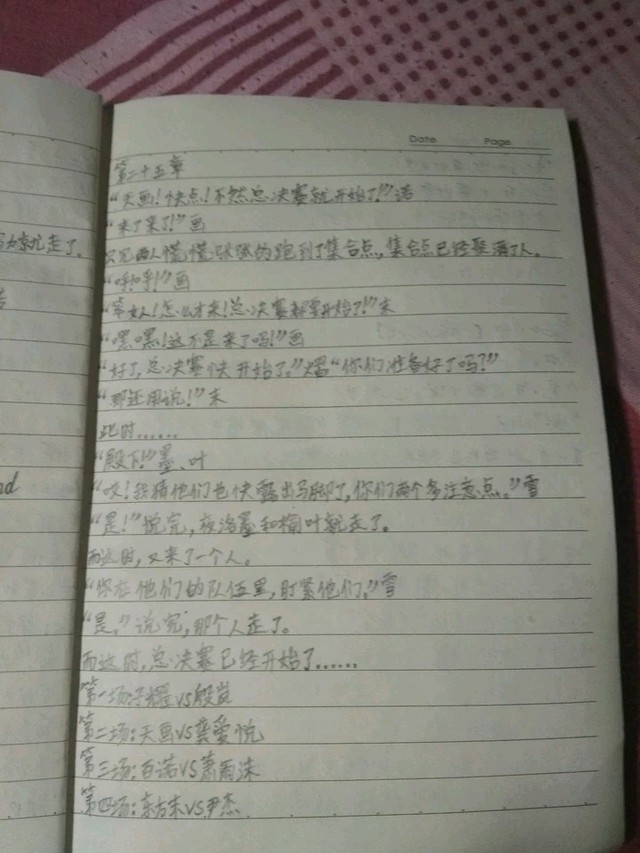 Date Page
第二十五章
"天画！快点！不然总决赛就开始了！"诺
"来了来了！"画
只见两人慌慌张张的跑到了集合点，集合点已经聚满了人。
"呼呼！"画
"笨女人！怎么才来！总决赛都要开始了！"末
"嘿嘿！这不是来了吗！"画
"好了，总决赛快开始了。""你们准备好了吗？"
"那还用说！"末
此时……
"殿下！"墨、叶
"哎！我猜他们也快露出马脚了，你们两个多注意点。"雪
"是！"说完，夜洛墨和楠叶就走了。
而这时，又来了一个人。
"你在他们的队伍里，盯紧他们。"雪
"是。"说完，那个人走了。
而这时，总决赛已经开始了……
第一场：子耀vs殷岚
第二场：天画vs龚爱悦
第三场：百诺vs萧雨沫
第四场：东方末vs尹杰
走了。
nd